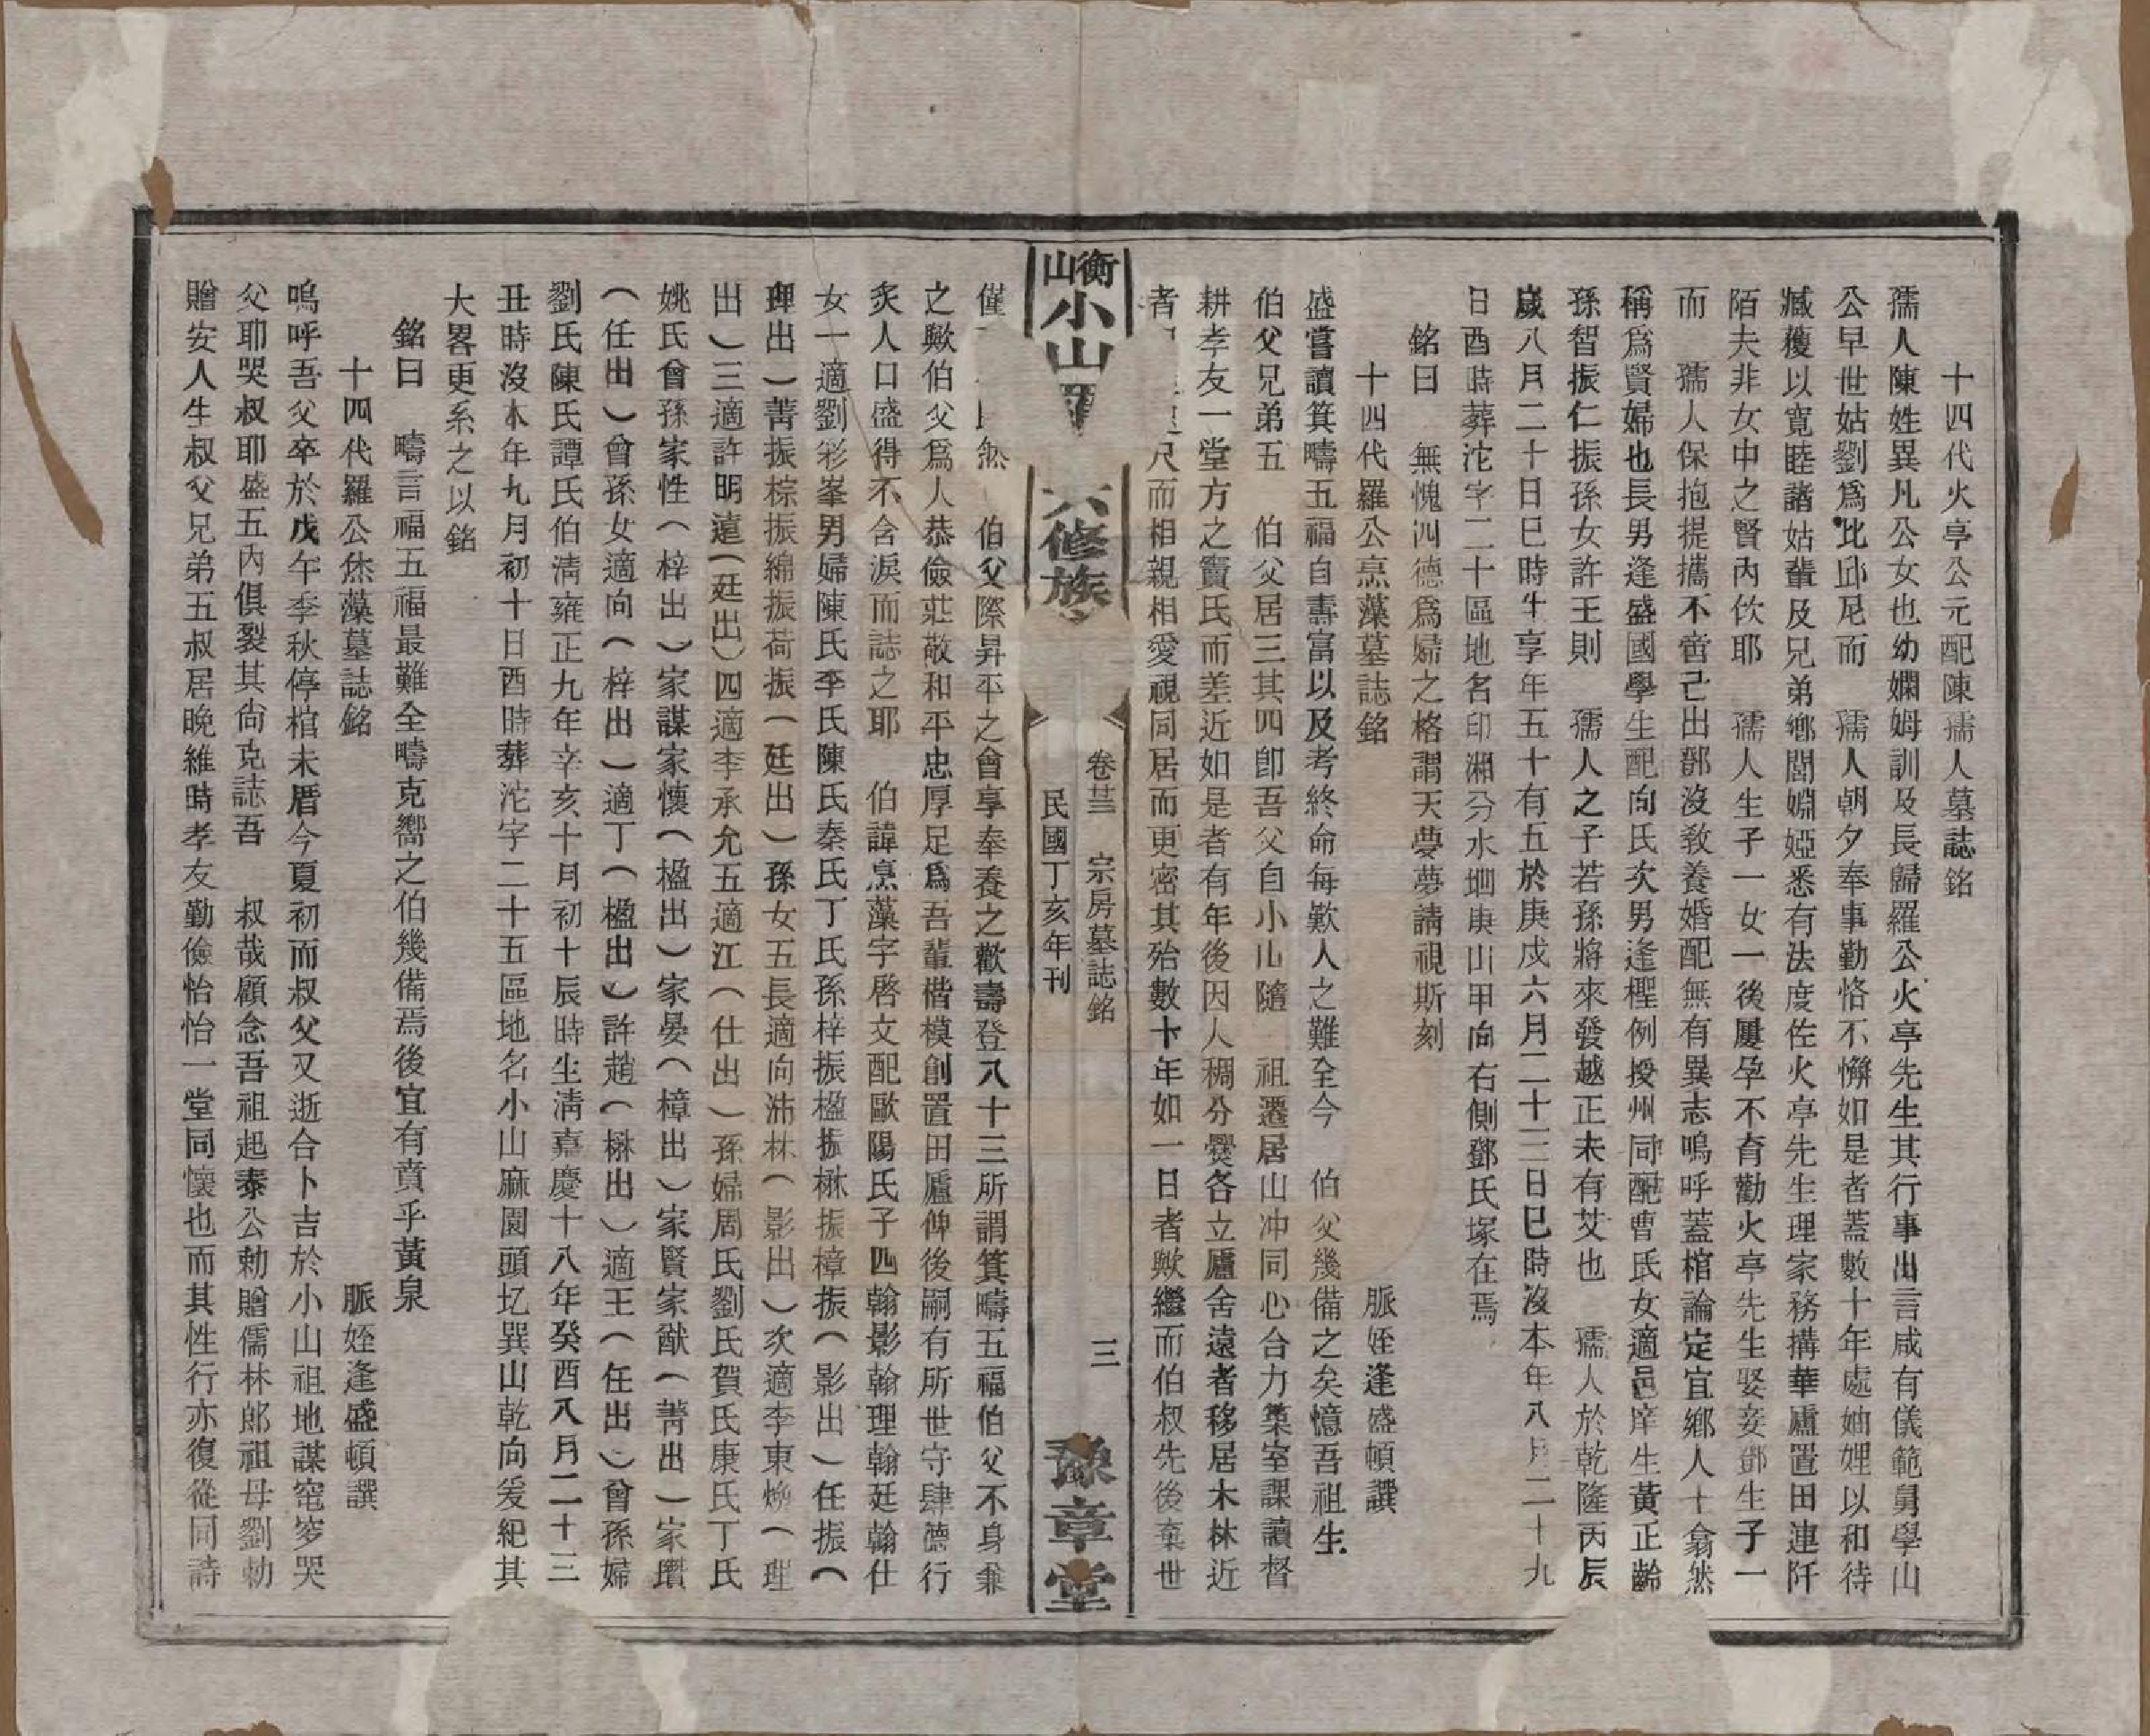 十四代火亭公元配陳孺人墓誌銘
孺人陳姓異凡公女也幼嫻姆訓及長歸羅公火亭先生其行事出言咸有儀範舅學山
公早世姑劉爲比邱尼而　孺人朝夕奉事勤恪不懈如是者蓋數十年處妯娌以和待
臧穫以寬睦諸姑輩及兄弟鄉閭婣婭悉有法度佐火亭先生理家務搆華廬置田連阡
陌夫非女中之賢內佽耶　孺人生子一女一後屢孕不育勸火亭先生娶妾鄧生子一
而　孺人保抱提攜不啻己出鄧沒敎養婚配無有異志嗚呼蓋棺論定宜鄉人士翕然
稱爲賢婦也長男逢盛國學生配向氏次男逢檉例授州同配曹氏女適邑庠生黃正齡
孫智振仁振孫女許王則　孺人之子若孫將來發越正未有艾也　孺人於乾隆丙辰
歲八月二十日巳時生享年五十有五於庚戌六月二十三日巳時沒本年八月二十九
日酉時葬沱字二十區地名印湘分水坳庚山甲向右側鄧氏塚在焉
銘曰　無愧四德爲婦之格謂天夢夢請視斯刻
十四代羅公烝藻墓誌銘　脈姪逢盛頓譔
盛嘗讀箕疇五福自壽富以及考終命每歎人之難全今　伯父幾備之矣憶吾祖生
伯父兄弟五　伯父居三其四卽吾父自小山隨　祖遷居山冲同心合力築室課讀督
耕孝友一堂方之竇氏而差近如是者有年後因人稠分爨各立廬舍遠者移居木林近
者尺而相親相愛視同居而更密其殆數十年如一日者歟繼而伯叔先後棄世
衡山小山　六修族
卷廿三　宗房墓誌銘　三
民國丁亥年刊
豫章堂
僅　然　伯父際昇平之會享奉養之歡壽登八十三所謂箕疇五福伯父不身兼
之歟伯父爲人恭儉莊敬和平忠厚足爲吾輩楷模創置田廬俾後嗣有所世守肆德行
炙人口盛得不含淚而誌之耶　伯諱烝藻字啓文配歐陽氏子四翰影翰理翰廷翰仕
女一適劉彩峯男婦陳氏李氏陳氏秦氏丁氏孫梓振楹振楙振樟振（影出）任振（
理出）菁振棕振綿振荷振（廷出）孫女五長適向沛林（影出）次適李東煥（理
出）三適許明遠（廷出）四適李承允五適江（仕出）孫婦周氏劉氏賀氏康氏丁氏
姚氏曾孫家性（梓出）家謀家懷（楹出）家晏（樟出）家賢家猷（菁出）家瓚
（任出）曾孫女適向（梓出）適丁（楹出）許趙（楙出）適王（任出）曾孫婦
劉氏陳氏譚氏伯淸雍正九年辛亥十月初十辰時生淸嘉慶十八年癸酉八月二十三
丑時沒本年九月初十日酉時葬沱字二十五區地名小山麻園頭圪巽山乾向爰紀其
大畧更系之以銘
銘曰　疇言福五福最難全疇克嚮之伯幾備焉後宜有賁乎黃泉
十四代羅公烋藻墓誌銘　脈姪逢盛頓譔
嗚呼吾父卒於戊午季秋停棺未厝今夏初而叔父又逝合卜吉於小山祖地謀窀穸哭
父耶哭叔耶盛五內俱裂其尙克誌吾　叔哉顧念吾祖起泰公勅贈儒林郎祖母劉勅
贈安人生叔父兄弟五叔居晚維時孝友勤儉怡怡一堂同懷也而其性行亦復從同詩